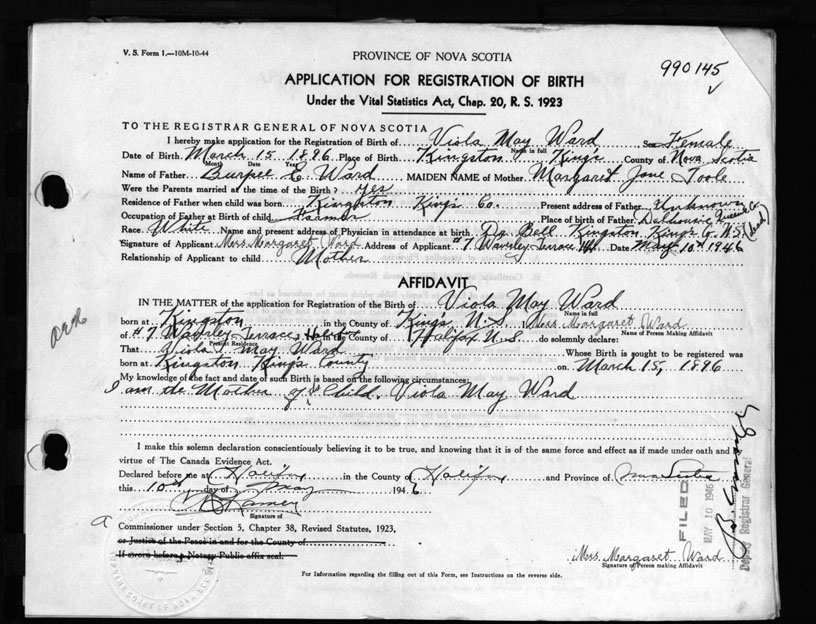 V. S. Form 1.—10M-10-44
PROVINCE OF NOVA SCOTIA
990145
APPLICATION FOR REGISTRATION OF BIRTH
Under the Vital Statistics Act, Chap. 20, R. S. 1923
TO THE REGISTRAR GENERAL OF NOVA SCOTIA
I hereby make application for the Registration of Birth of Viola May Ward Sex Female
Name in full
Date of Birth March 15 1896 Place of Birth Kingston Kings County of Nova Scotia
Month Date Year
Name of Father Burpee E. Ward MAIDEN NAME of Mother Margaret Jane Toole
Were the Parents married at the time of the Birth? yes
Residence of Father when child was born Kingston Kings Co. Present address of Father Unknown
Occupation of Father at Birth of child Place of birth of Father Dalhousie Queens Co. (dead)
Race White Name and present address of Physician in attendance at birth Dr. Bell Kingston Kings Co. N.S.
Signature of Applicant Mrs Margaret Ward Address of Applicant #7 Waverley Terrace Hfx Date May 10th 1946
Relationship of Applicant to child Mother
AFFIDAVIT
IN THE MATTER of the application for Registration of the Birth of Viola May Ward
Name in full
born at Kingston in the County of Kings N.S. Mrs Margaret Ward
Name of Person Making Affidavit
of #7 Waverley Terrace, Halifax in the County of Halifax N.S. do solemnly declare:
Present Residence
That Viola May Ward Whose Birth is sought to be registered was
born at Kingston Kings County on March 15, 1896
My knowledge of the fact and date of such Birth is based on the following circumstances:
I am the Mother of the Child, Viola May Ward
I make this solemn declaration conscientiously believing it to be true, and knowing that it is of the same force and effect as if made under oath and by
virtue of The Canada Evidence Act.
Declared before me at Halifax in the County of Halifax and Province of Nova Scotia
this 10th day of May 1946
Signature of
a Commissioner under Section 5, Chapter 38, Revised Statutes, 1923,
or Justice of the Peace in and for the County of
If sworn before a Notary Public affix seal.
Mrs. Margaret Ward
Signature of Person making Affidavit
For Information regarding the filling out of this Form, see Instructions on the reverse side.
FILED
MAY 10 1946
Deputy Registrar General